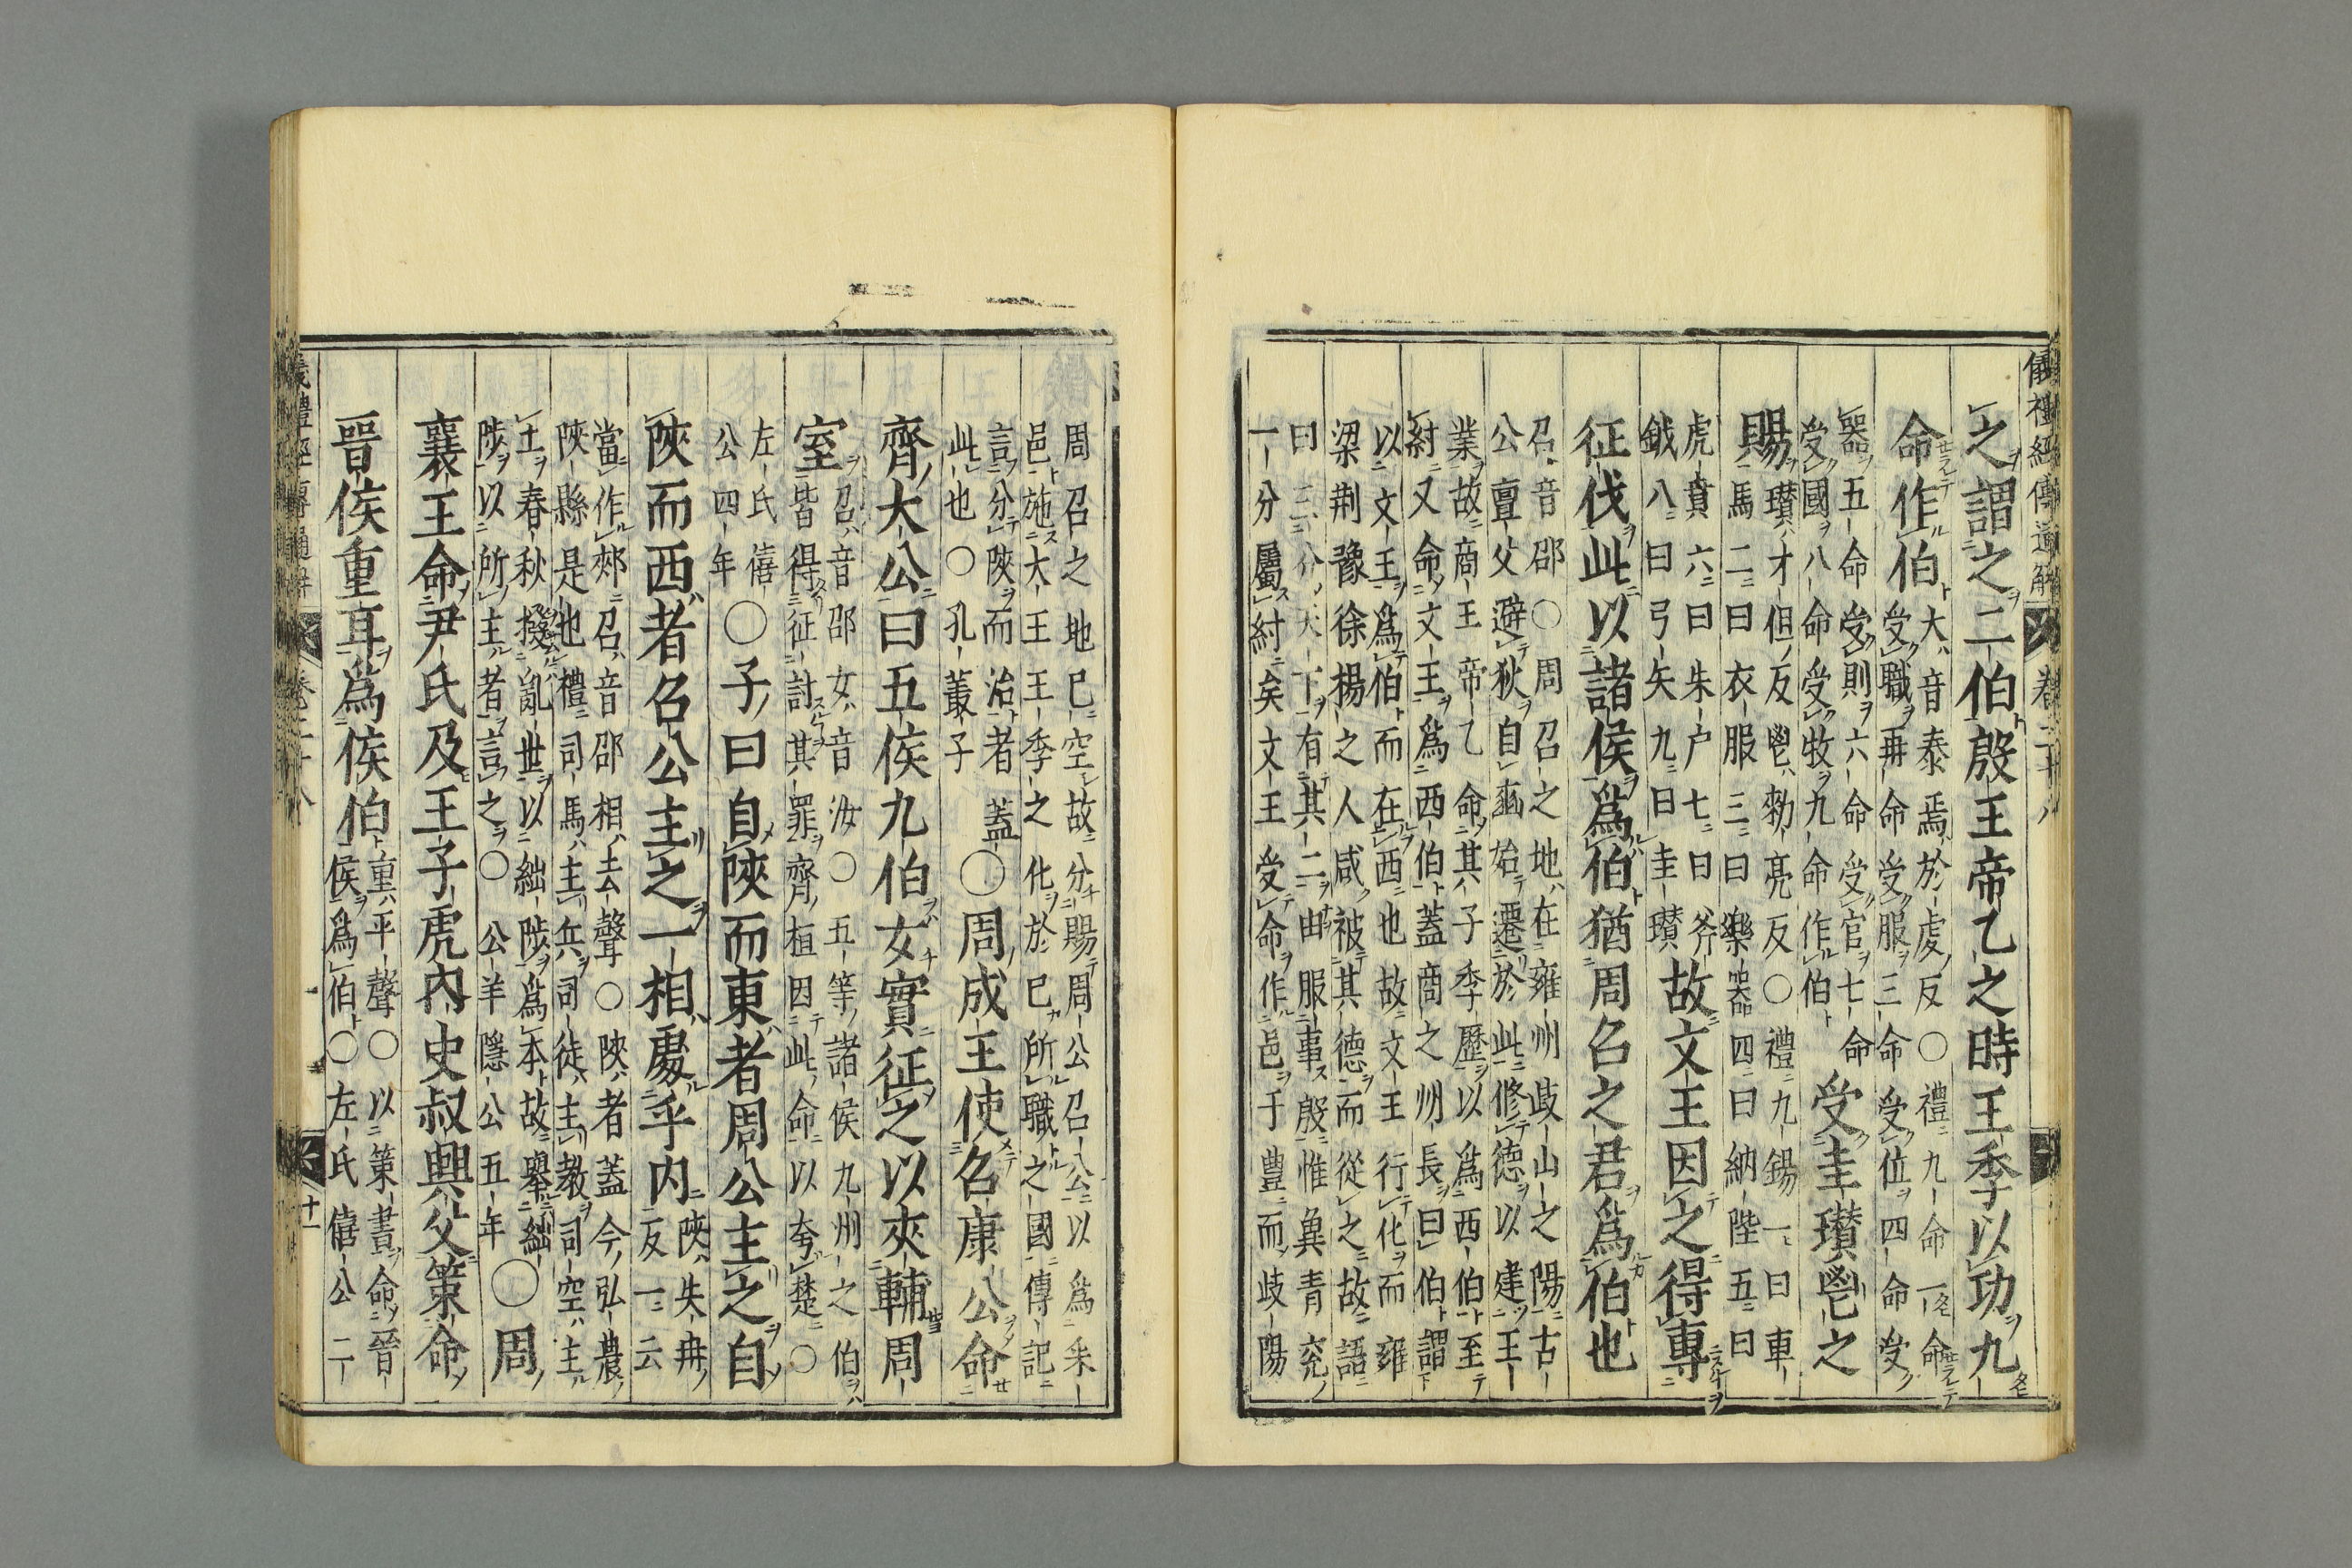 儀禮經傳通解 卷二十八
之謂之二伯殷王帝乙之時王季以功九
命作伯
大音泰焉於虔反○禮九命一命
受職再命受服三命受位四命受
器五命受則六命受官七命
受國八命受牧九命作伯
受圭瓚鬯之
賜
瓚才但反鬯勑亮反○禮九錫一曰車
馬二曰衣服三曰樂器四曰納陛五曰
虎賁六曰朱户七曰斧
鉞八曰弓矢九曰圭瓚
故文王因之得專
征伐此以諸侯爲伯猶周召之君爲伯也
召音邵○周召之地在雍州歧山之陽古
公亶父避狄自豳始遷於此修德以建王
業故商王帝乙命其子季歷以爲西伯至
紂又命文王爲西伯蓋商之州長曰伯謂
以文王爲伯而在西也故文王行化而雍
梁荆豫徐揚之人咸被其德而從之故語
曰三分天下有其二由服事殷惟兾青兖
一分屬紂矣文王受命作邑于豐而歧陽
周召之地已空故分賜周公召公以爲采
邑施大王王季之化於已所職之國傳記
言分陝而治者蓋
此也○孔叢子
○周成王使召康公命
齊大公曰五侯九伯女實征之以夾輔周
室
召音邵女音汝○五等諸侯九州之伯
皆得征討其罪齊桓因此命以夸楚○
左氏僖
公四年
○子曰自陝而東者周公主之自
陝而西者召公主之一相處乎内
陝失冉
反一云
當作郟召音邵相去聲○陝者蓋今弘農
陝縣是也禮司馬主兵司徒主教司空主
土春秋撥亂世以絀陟爲本故舉絀
陟以所主者言之○公羊隱公五年
○周
襄王命尹氏及王子虎内史叔興父策命
晋侯重耳爲侯伯
重平聲○以策書命晉
侯爲伯○左氏僖公二
儀禮經傳通解 卷二十八 十一